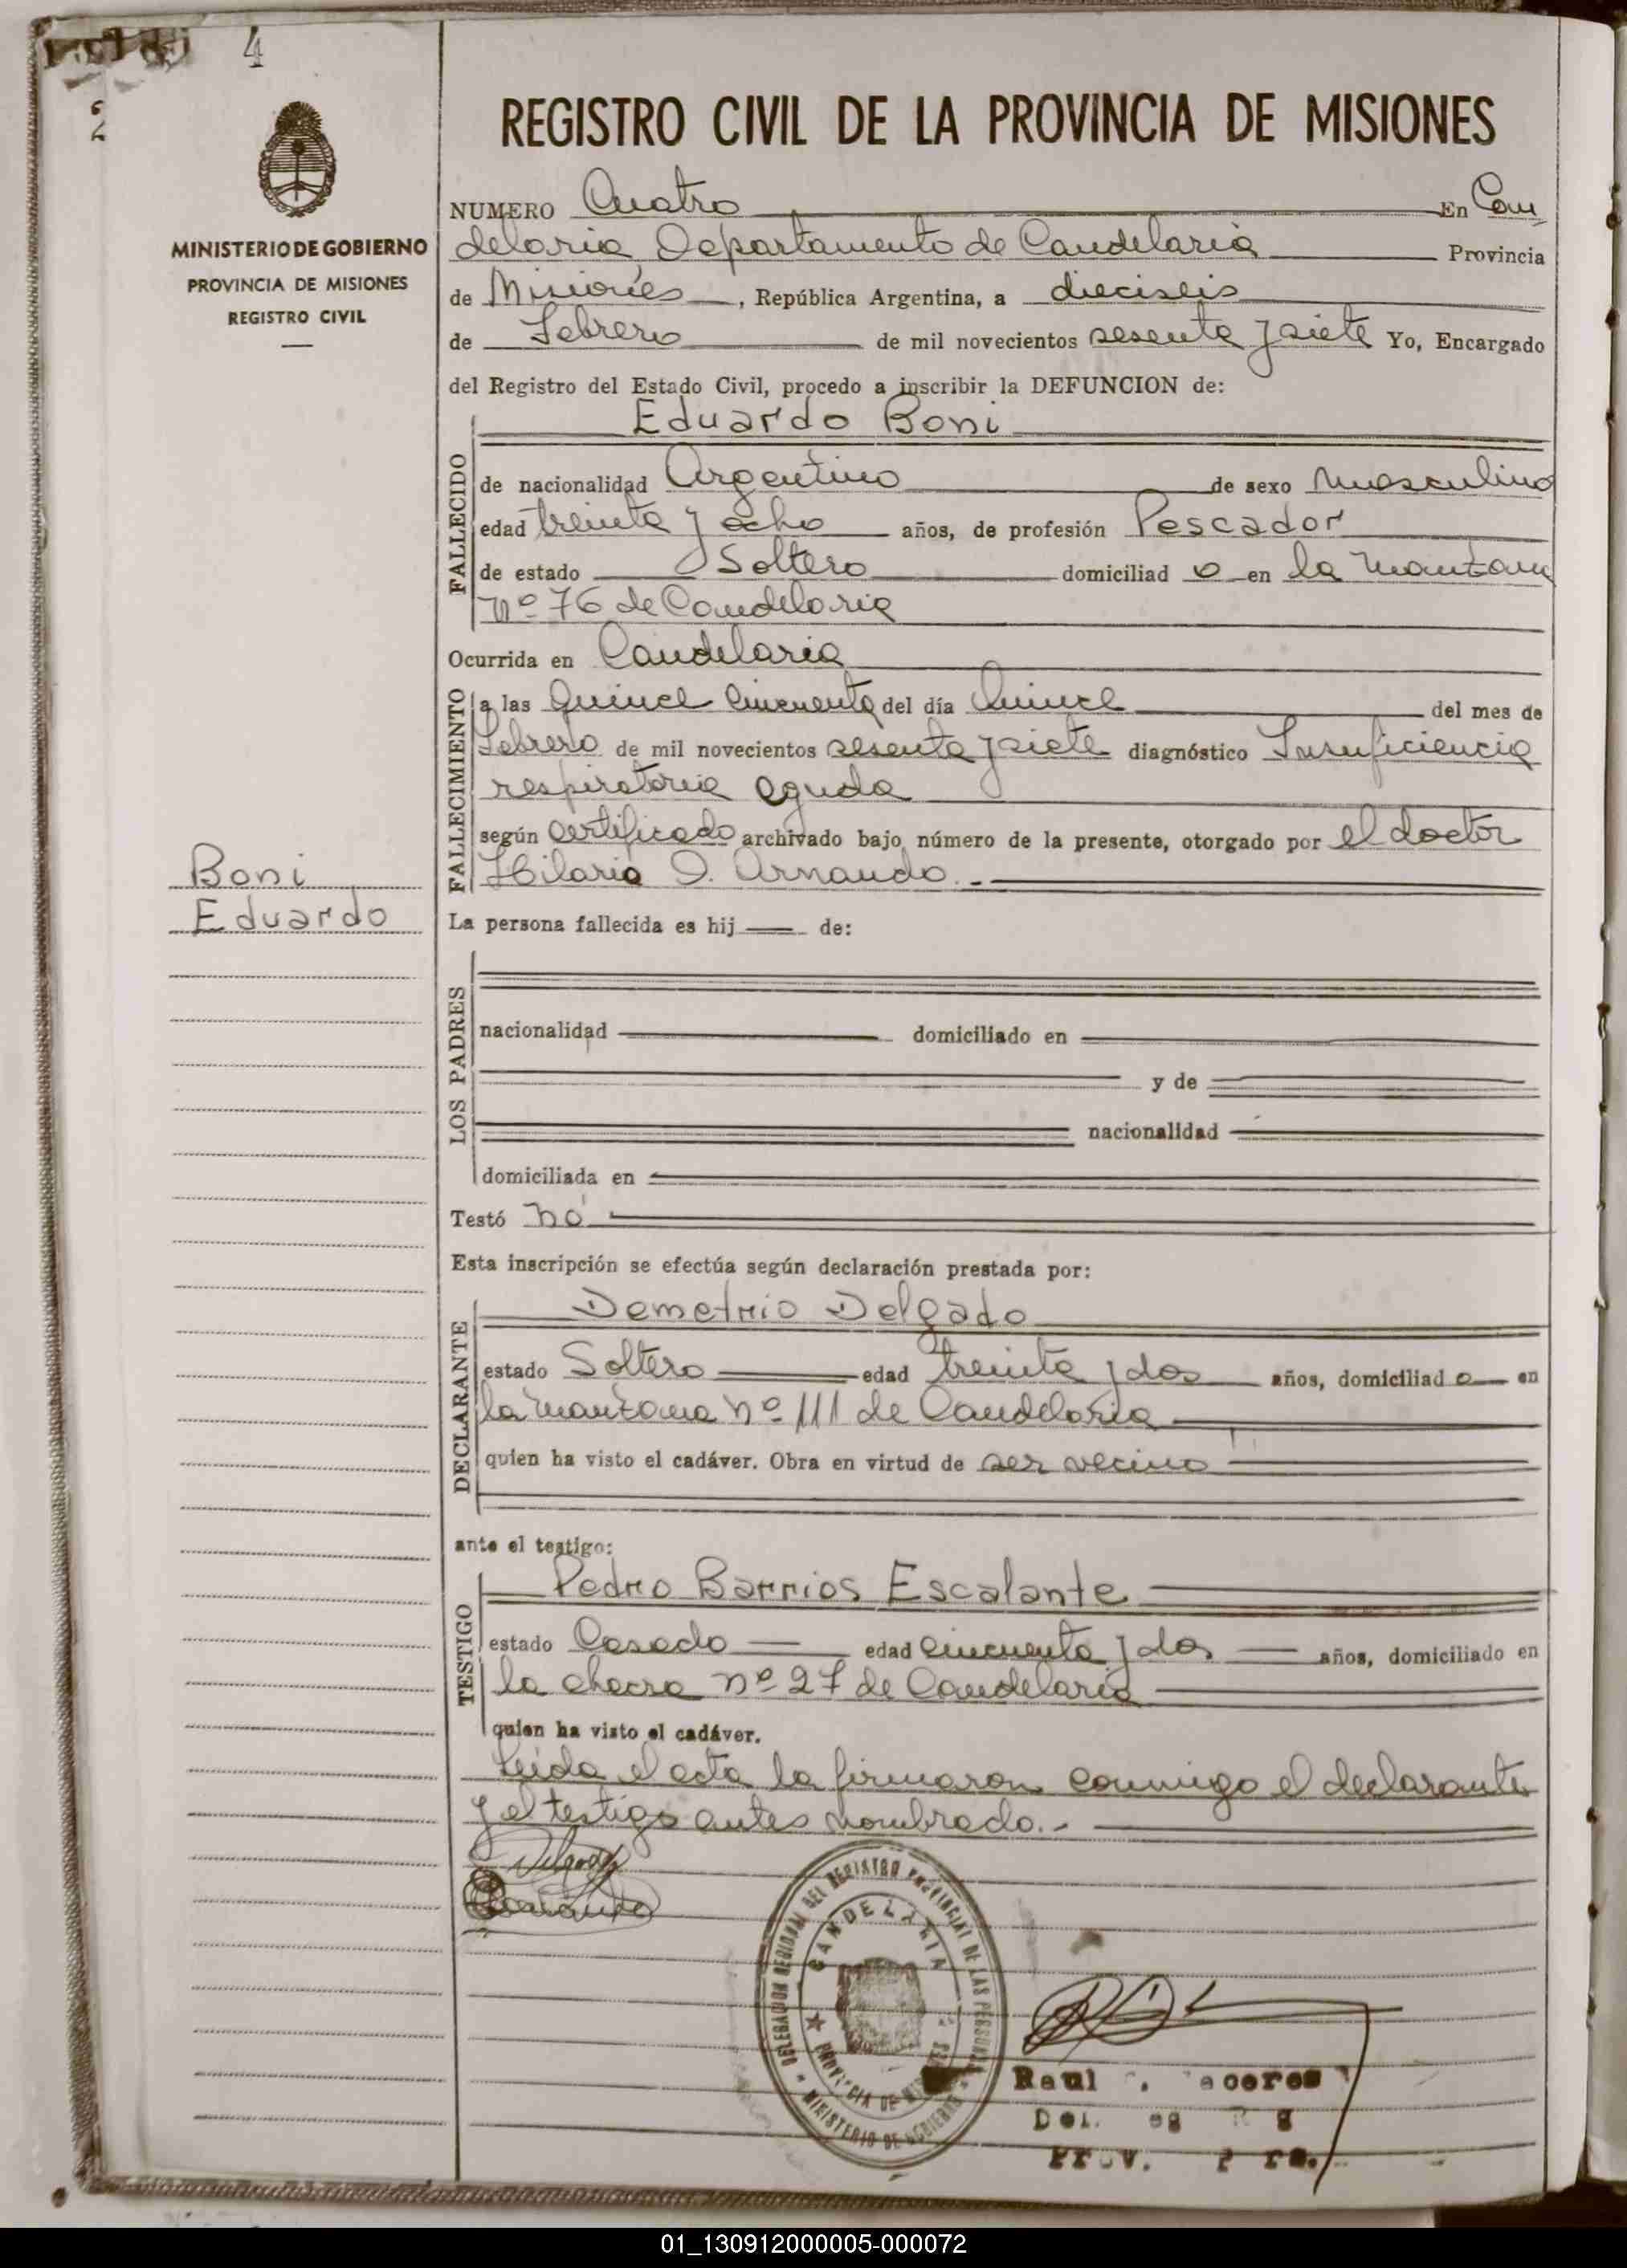 4
2
MINISTERIO DE GOBIERNO
PROVINCIA DE MISIONES
REGISTRO CIVIL
Boni
Eduardo
REGISTRO CIVIL DE LA PROVINCIA DE MISIONES
NUMERO Cuatro En Can
delaria, Departamento de Candelaria Provincia
de Misiones, República Argentina, a dieciseis
de Febrero de mil novecientos sesenta y siete Yo, Encargado
del Registro del Estado Civil, procedo a inscribir la DEFUNCION de:
Eduardo Boni
FALLECIDO
de nacionalidad Argentino de sexo masculino
edad treinta y ocho años, de profesión Pescador
de estado Soltero domiciliad o en la manzana
nº 76 de Candelaria
Ocurrida en Candelaria
FALLECIMIENTO
a las Quince Cincuenta del día Quince del mes de
Febrero de mil novecientos sesenta y siete diagnóstico Insuficiencia
respiratoria aguda
según certificado archivado bajo número de la presente, otorgado por el doctor
Hilario O. Arnando.-
La persona fallecida es hij de:
LOS PADRES
nacionalidad domiciliado en
y de
nacionalidad
domiciliada en
Testó no
Esta inscripción se efectúa según declaración prestada por:
Demetrio Delgado
DECLARANTE
estado Soltero edad treinta y dos años, domiciliad o en
la manzana nº 111 de Candelaria
quien ha visto el cadáver. Obra en virtud de ser vecino
ante el testigo:
Pedro Barrios Escalante
TESTIGO
estado Casado edad cincuenta y dos años, domiciliado en
la chacra nº 27 de Candelaria
quien ha visto el cadáver.
Leída el acta la firmaron conmigo el declarante
y el testigo antes nombrado.-
Delgado
DELEGACION REGIONAL DEL REGISTRO PROVINCIAL DE LAS PERSONAS
CANDELARIA
PROVINCIA DE MISIONES
MINISTERIO DE GOBIERNO
Raul
01_130912000005-000072